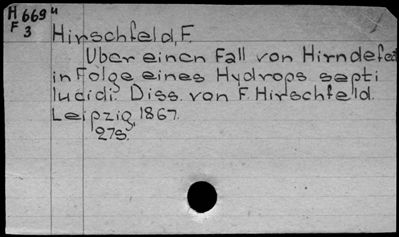 H 669 u
F 3
Hirschfeld, F.
Uber einen Fall von Hirndefect
in Folge eines Hydrops septi
lucidi. Diss. von F. Hirschfeld.
Leipzig, 1867.
27s.